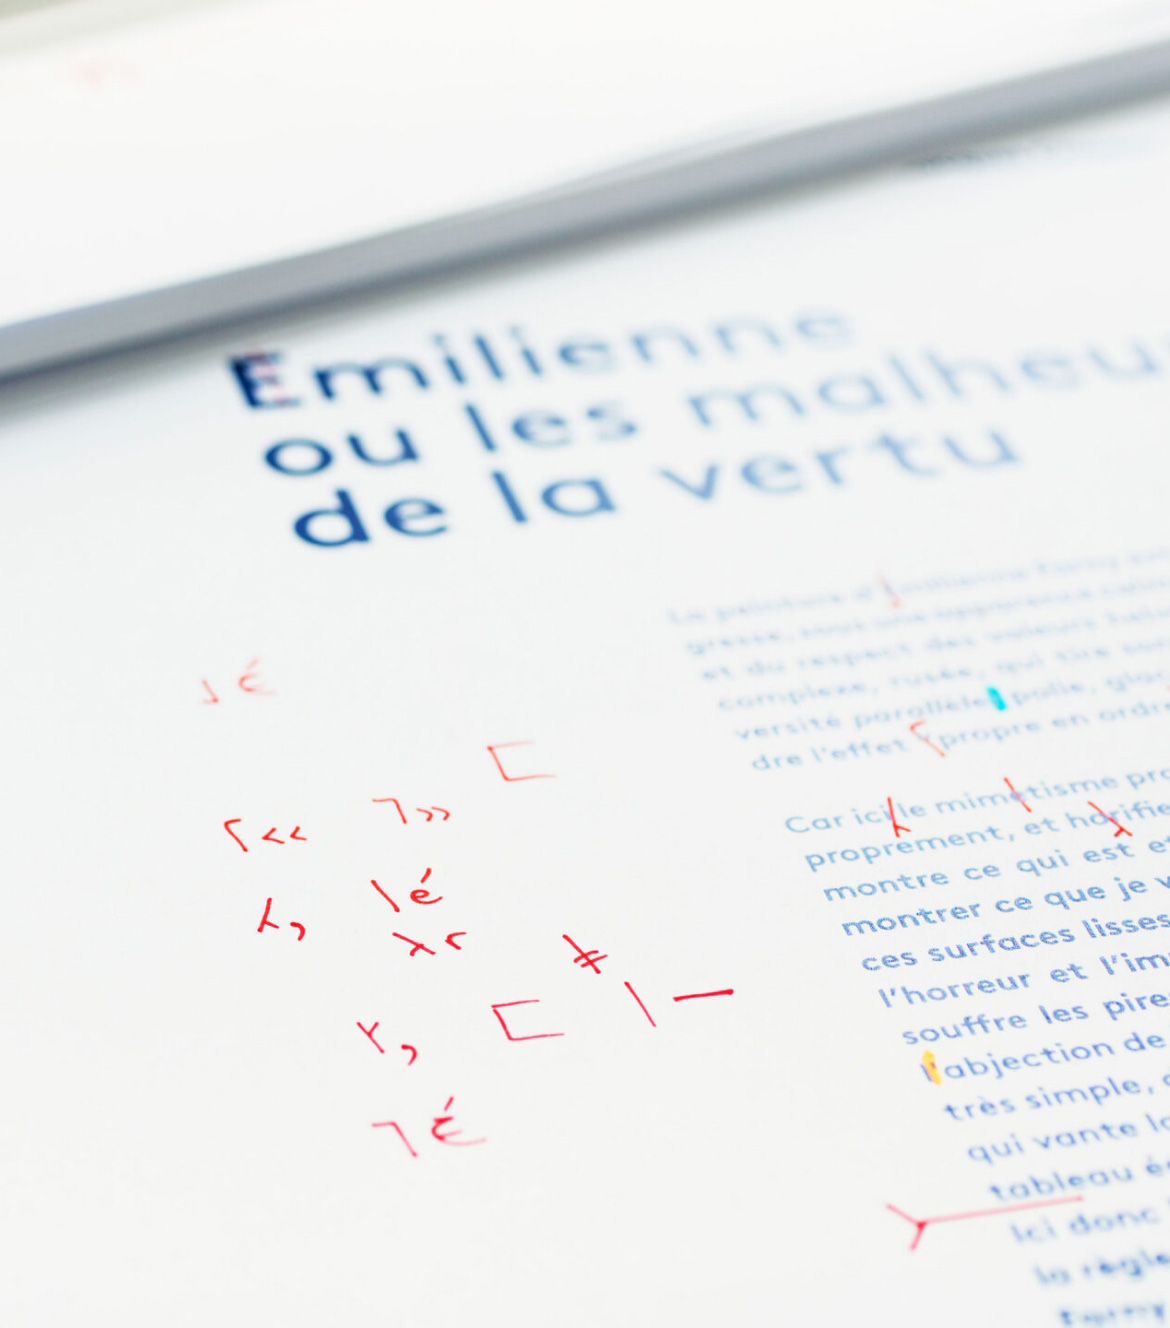 Émilienne
ou les malheu
de la vertu
É
<< >>
, é
r
,
É
La peinture d'
gresse, sous une apparence
et du respect des valeurs
complexe, rusée, qui tire
versité parallèle polie,
dre l'effet propre en ordre
Car ici le mimetisme pro
proprement, et horifie
montre ce qui est et
montrer ce que je v
ces surfaces lisses
l'horreur et l'im
souffre les pire
l'abjection de
très simple,
qui vante la
tableau é
Ici donc
la règle